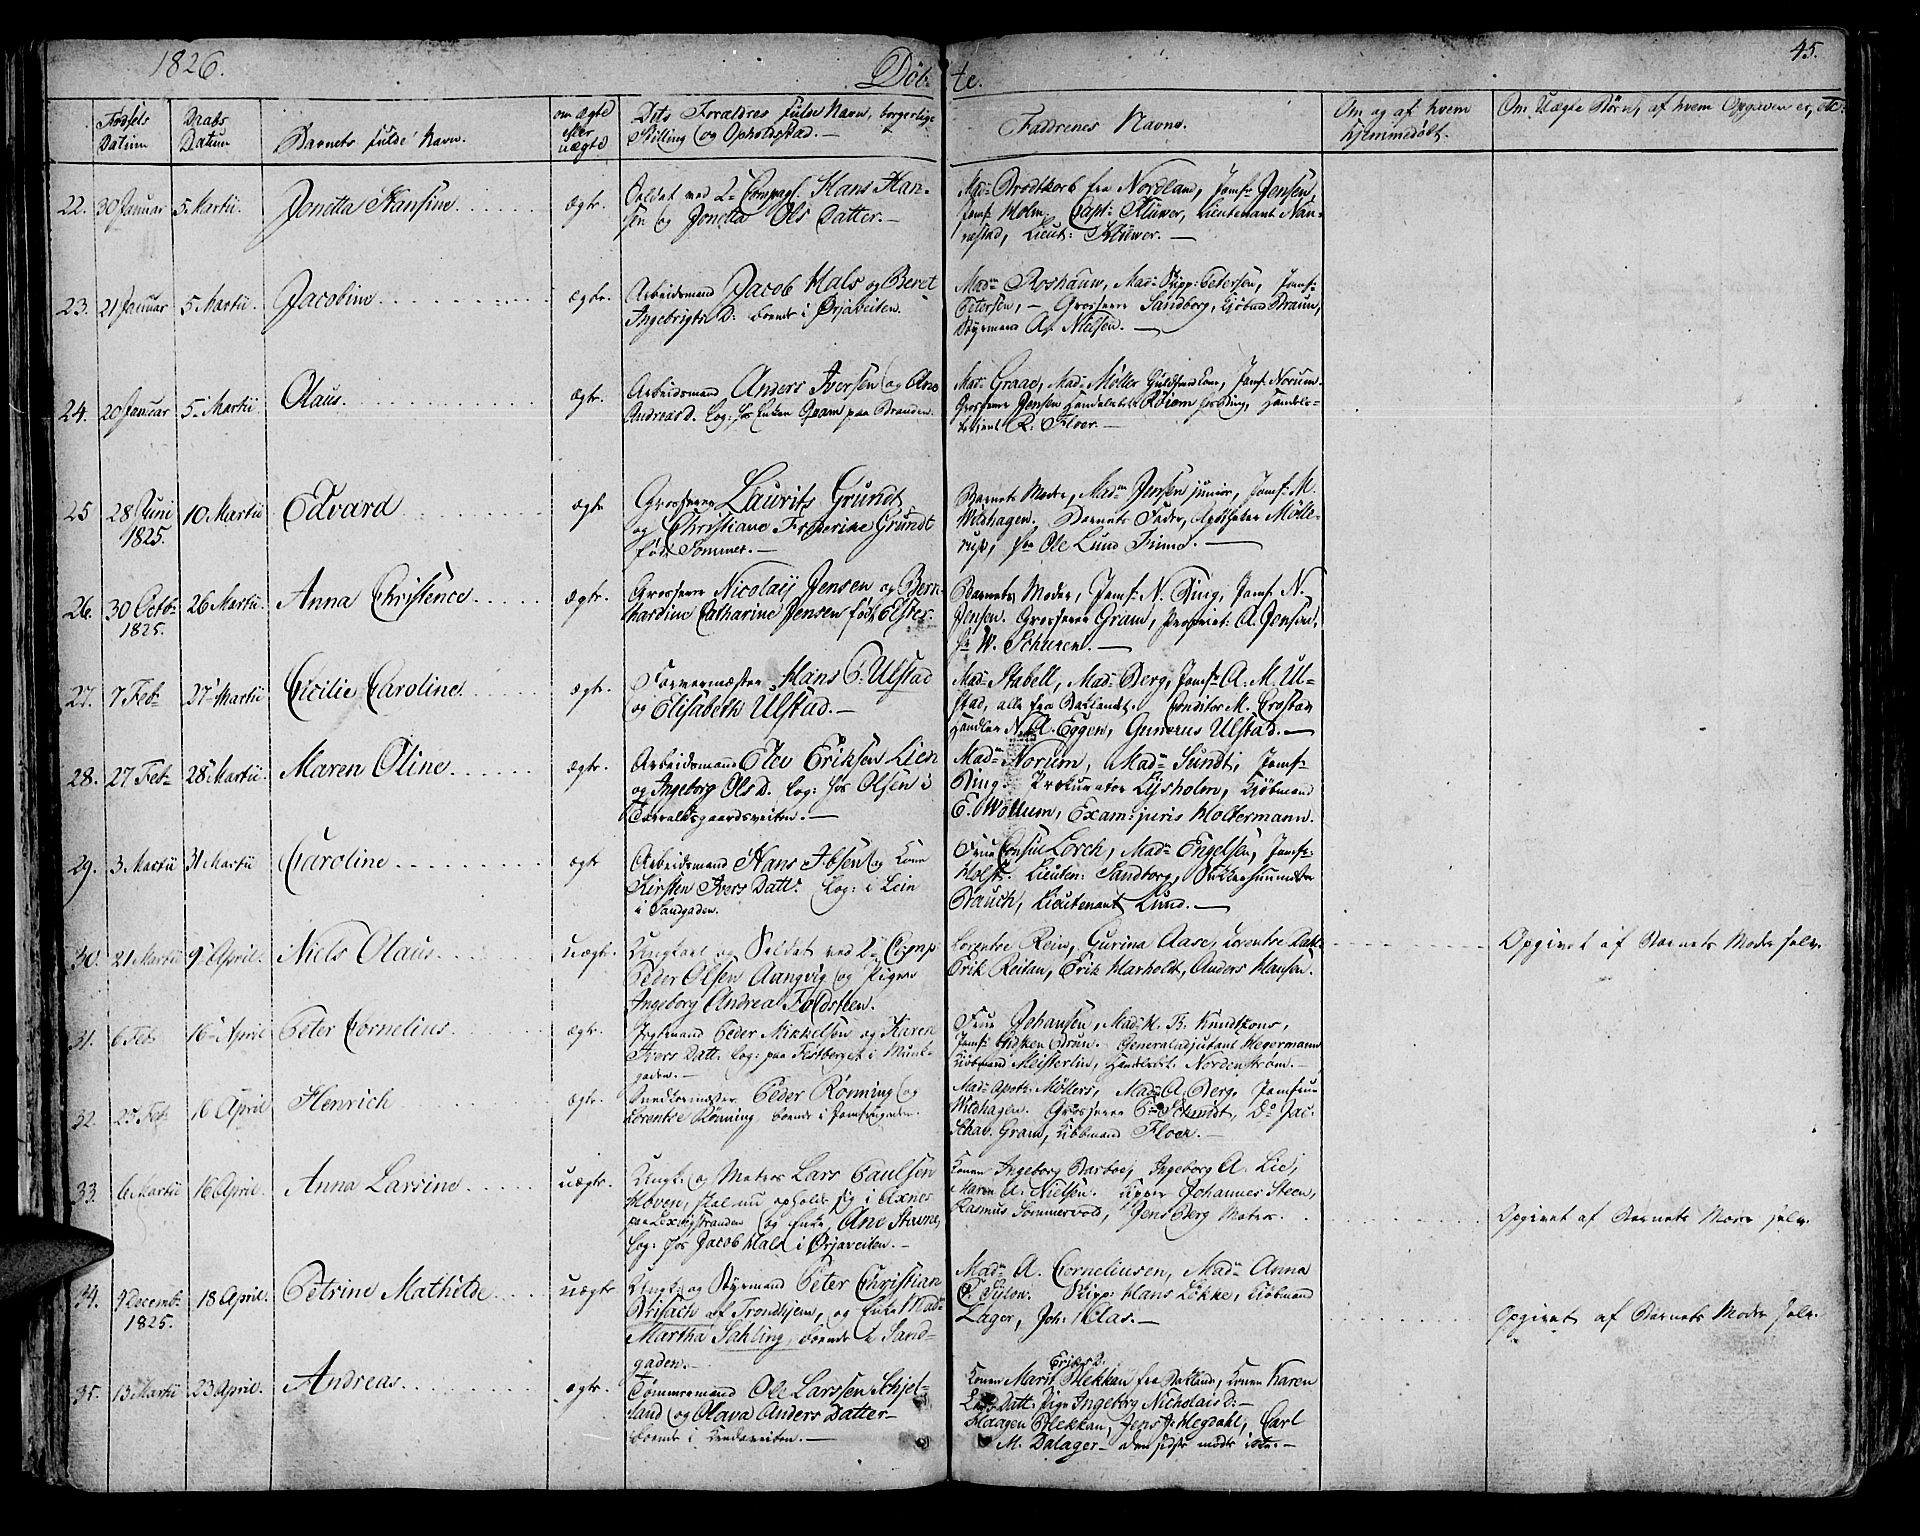 1826.
Døb-
te.
45.
Fødsels Datum
Daabs Datum
Barnets fulde Navn.
om ægte eller uægte
Dets Forældres fulde Navn, borgerlige Stilling og Opholdsstad.
Faddrenes Navne.
Om og af hvem hjemmedøbt.
Om Uægte Børn, af hvem Opgaven er, etc.
22. 30 Januar 5 Martii Jonetta Hansine ægte. Soldat ved 2 Compagn. Hans Han-
sen og Jonetta Ols Datter.
Mad: Brodtkorb fra Nordlan, Jomf: Jensen,
Jomf: Holm. Capt: Klüwer, Lieutenant Nan-
nestad, Lieut: Klüwer.
23. 21 Januar 5 Martii Jacobine ægte. Arbeidsmand Jacob Hals og Beret
Ingebrigts D: boende i Ørjaveiten.
Mad: Roshauw, Mad: Skipp: Petersen, Jomf:
Petersen, Grosserer Sandborg, Kjøbmd Braun,
Styrmand A. Nielsen.
24. 20 Januar 5 Martii Olaus ægte. Arbeidsmand Anders Iversen og Ane
Andreas D. Log: hos Enken Gram paa Branden.
Mad: Graae, Mad: Møller Guldsmed Kone, Jomf: Norum.
Grosserer Jensen Handelsbetj: Röiem hos Ring, Handels-
betjent R. Floer.
25 28 Juni 1825. 10 Martii Edvard ægte Grosserer Laurits Grundt
og Christiane Frederike Grundt
født Sommer.
Barnets Moder, Madm Jensen junior, Jomf: M.
Wildhagen. Barnets Fader, Apotheker Mølle-
rup, Hr Ole Lund Finne.
26. 30 Octb: 1825. 26 Martii. Anna Christence ægte. Grosserer Nicolaij Jensen og Bern-
hardine Catharine Jensen født Elster.
Barnets Moder, Jomf: N. Ring, Jomf: N.
Jensen. Grosserer Gram, Propriet: A. Jensen,
Hr W. Schureen.
27. 7 Feb: 27 Martii Cicilie Caroline ægte. Farvermæster Hans P. Ulstad
og Elisabeth Ulstad.
Mad: Stabell, Mad: Berg, Jomf: A. M. Ul-
stad, alle fra Baklandet. Conditor M. Crostad
Handler N. A. Eggen, Gunerus Ulstad.
28. 27 Feb: 28 Martii Maren Oline ægte. Arbeidsmand Elev Eriksen Lien
og Ingeborg Ols D. Log: hos Olsen i
Taraldsgaardsveiten.
Mad: Norum, Mad: Sundt, Jomf:
Ring. Prokurator Lysholm, Kjøbmand
E. Wollum, Exam: juris Holtermann.
29. 3 Martii 31 Martii Caroline ægte Arbeidsmand Hans Ibsen og Kone
Kirsten Ivers Datt: Log: i Lein
i Sandgaden.
Frue Consul Lorch, Mad: Engelsen, Jomf:
Holst. Lieuten: Sandborg,
Rauch, Lieutenant Lund.
30. 21 Martii 9 April. Niels Olaus uægte. Ungkarl og Soldat ved 2 Comp.
Peder Olsen Aangvig og Pigen
Ingeborg Andrea Foldsteen.
Lorentse Rein, Gurina Aase, Lorentse Dahl
Erik Reitan, Erik Marholdt, Anders Hansen.
Opgivet af Barnets Moder selv.
31. 6 Feb: 16 April Peter Cornelius ægte. Peder Mikkelsen og Karen
Ivers Datt: Log: paa Festberget i Munk-
gaden.
Frue Johansen, Mad: H. B. Knudtzons,
Jomf: Lidken Brun. Generaladjutant Megermann
Kjøbmand Meisterlin, Handelsbt. Nordenstrøm.
32. 25 Feb 16 April Henrich ægte. Snedkermester Peder Rønning og
Lorentse Rønning, boende i Jomfrugaden.
Mad: Apoth: Møllers, Mad: A. Berg, Jomfrue
Wildhagen. Grosserer P. Schmidt, Do Jac.
Schav. Gram, Kjøbmand Floer.
33. 6 Martii 16 April. Anna Larsine uægte. Ungk: og Matros Lars Paulsen
Hoven, skal nu opholde sig i Axnes
paa Lexvigstranden og Enke Ane Stavne,
Log: hos Jacob Hals i Ørjaveiten.
Konen Ingeborg Barboe, Ingeborg A. Lie,
Maren A. Nielsen. Johannes Steen,
Rasmus Sommervold, Jens Berg Matros.
Opgivet af Barnets Moder selv.
34. 9 Decemb: 1825. 18 April. Petrine Mathilde uægte Ungk: og Styrmand Peter Christian
Brisach af Trondhjem, og Enke Mad:
Martha Sahling, boende i Sand-
gaden.
Mad: A. Corneliusen, Mad: Anna
C. Tulow. Skipp: Hans Løkke, Kjøbmand
Lager, Joh: Klas.
Opgivet af Barnets Moder selv.
35. 13 Martii 23 April. Andreas ægte. Tømmermand Ole Larssen Schjel-
land og Olava Anders Datter
boende i Kendaveiten.
Konen Marit Eriks D. Blekkan fra Bakland, Konen Karen
Lars Datt: Pige Ingeborg Nicholais D:
Haagen Blekkan, Jens J. Megdahl, Carl
M. Dalager - den sidste mødte ikke.